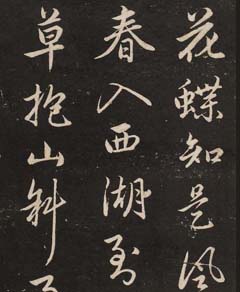 花蝶知是风
春入西湖到
草抱山斜